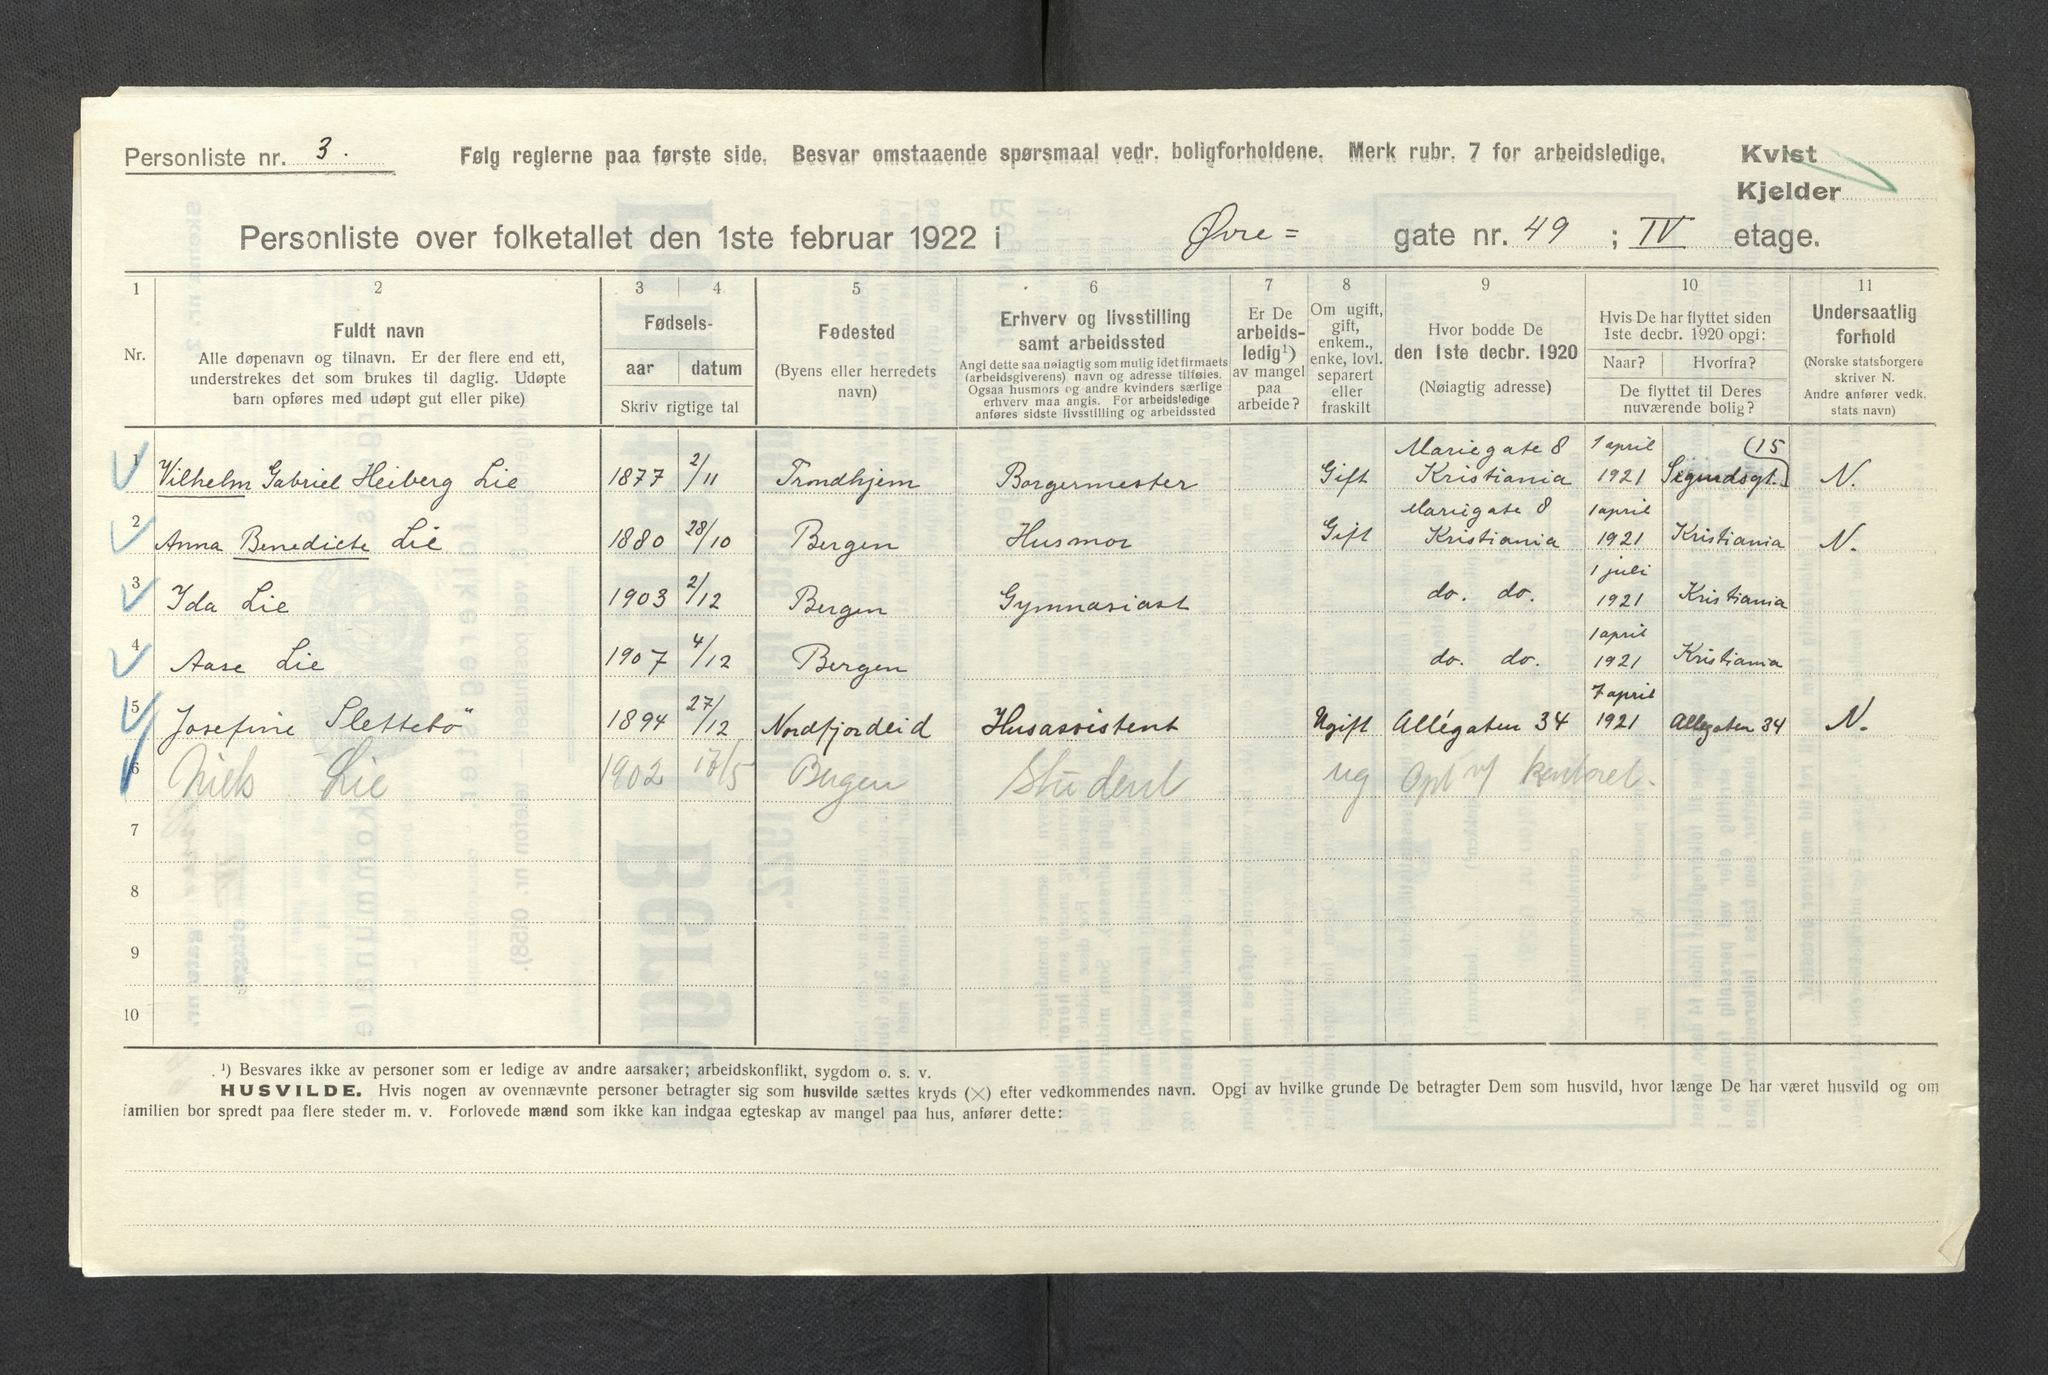 Personliste nr. 3. Følg reglerne paa første side. Besvar omstaaende spørsmaal vedr. boligforholdene. Merk rubr. 7 for arbeidsledige. Kvist
Kjelder
Personliste over folketallet den 1ste februar 1922 i Øvre= gate nr. 49 ; IV etage.
1 2 3 4 5 6 7 8 9 10 11
Nr.
Fuldt navn
Alle døpenavn og tilnavn. Er der flere end ett,
understrekes det som brukes til daglig. Udøpte
barn opføres med udøpt gut eller pike)
Fødsels-
aar datum
Skriv rigtige tal
Fødested
(Byens eller herredets
navn)
Erhverv og livsstilling
samt arbeidssted
Angi dette saa nøiagtig som mulig idet firmaets
(arbeidsgiverens) navn og adresse tilføies.
Ogsaa husmors og andre kvinders særlige
erhverv maa angis. For arbeidsledige
anføres sidste livsstilling og arbeidssted
Er De
arbeids-
ledig¹)
av mangel
paa
arbeide?
Om ugift,
gift,
enkem.,
enke, lovl.
separert
eller
fraskilt
Hvor bodde De
den 1ste decbr. 1920
(Nøiagtig adresse)
Hvis De har flyttet siden
1ste decbr. 1920 opgi:
Naar? Hvorfra?
De flyttet til Deres
nuværende bolig?
Undersaatlig
forhold
(Norske statsborgere
skriver N.
Andre anfører vedk.
stats navn)
Mariegate 8 1 april (15
1 Vilhelm Gabriel Heiberg Lie 1877 2/11 Trondhjem Borgermester Gift Kristiania 1921 Sigurdsgt. N.
Mariegate 8 1 april
2 Anna Benedicte Lie 1880 28/10 Bergen Husmor Gift Kristiania 1921 Kristiania N.
1 juli
3 Ida Lie 1903 2/12 Bergen Gymnasiast do. do. 1921 Kristiania
1 april
4 Aase Lie 1907 4/12 Bergen do. do. 1921 Kristiania
7 april
5 Josefine Slettebö 1894 27/12 Nordfjordeid Husassistent Ugift Allégaten 34 1921 Allegaten 34 N.
6 Niels Lie 1902 17/5 Bergen Student ug Opt v/ kontoret.
7
8
9
10
¹) Besvares ikke av personer som er ledige av andre aarsaker; arbeidskonflikt, sygdom o. s. v.
HUSVILDE. Hvis nogen av ovennævnte personer betragter sig som husvilde sættes kryds (×) efter vedkommendes navn. Opgi av hvilke grunde De betragter Dem som husvild, hvor længe De har været husvild og om
familien bor spredt paa flere steder m. v. Forlovede mænd som ikke kan indgaa egteskap av mangel paa hus, anfører dette: